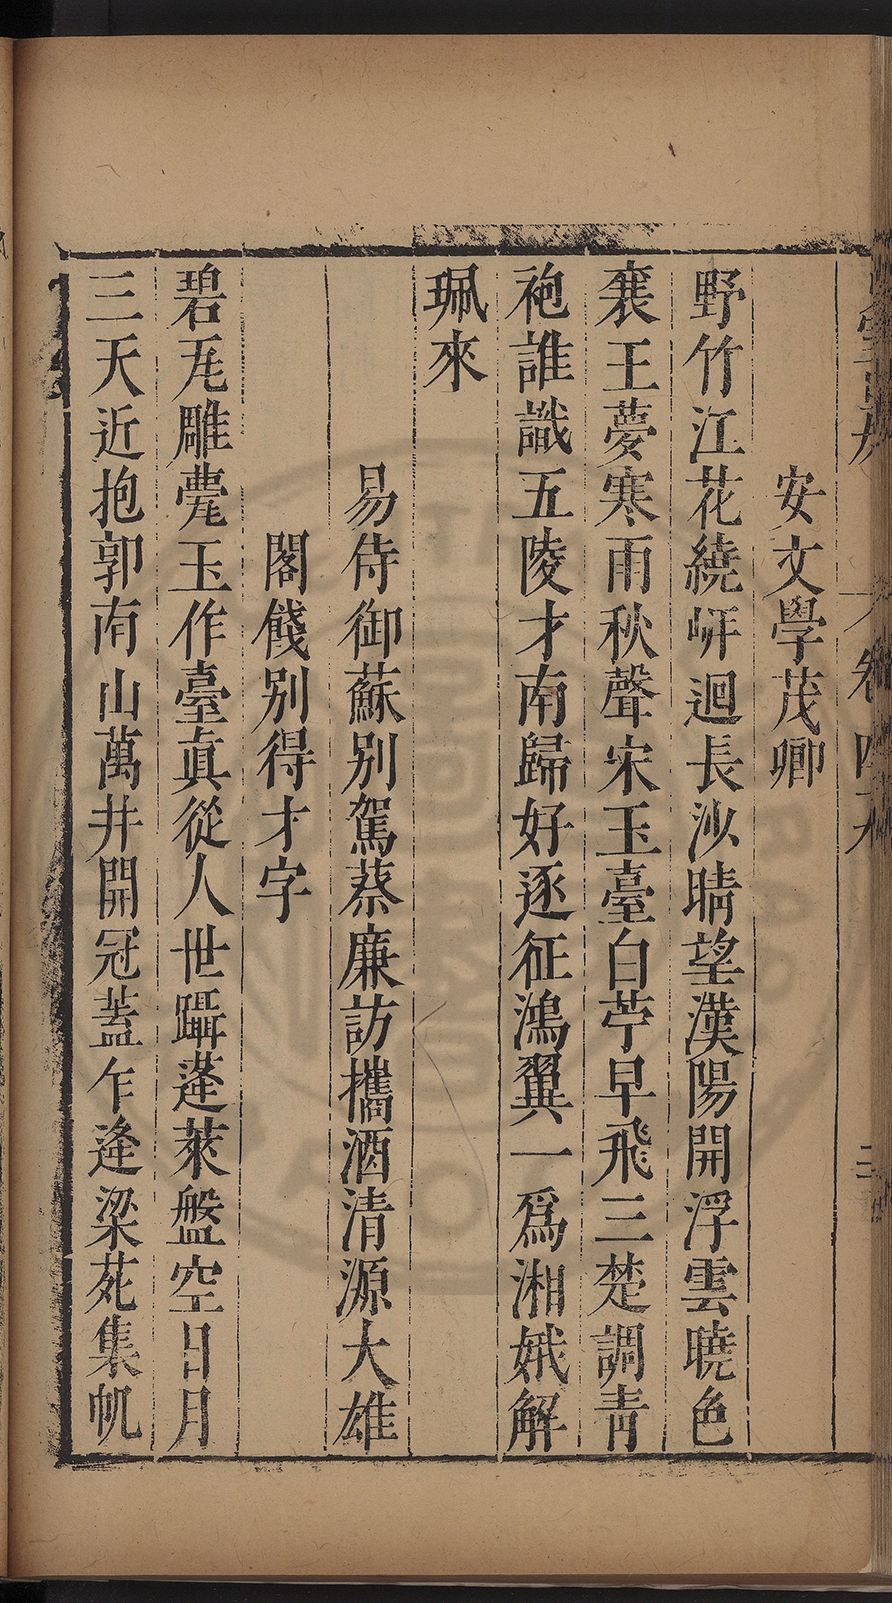 安文學茂卿
野竹江花繞岍迴長沙晴望漢陽開浮雲曉色
襄王夢寒雨秋聲宋玉臺白苧早飛三楚調青
袍誰識五陵才南歸好逐征鴻翼一爲湘娥解
珮來
易侍御蘇別駕蔡廉訪攜酒清源大雄
閣餞别得才字
碧瓦雕甍玉作臺眞從人世躡蓬萊盤空日月
三天近抱郭南山萬井開冠蓋乍逢梁苑集帆
卷四九